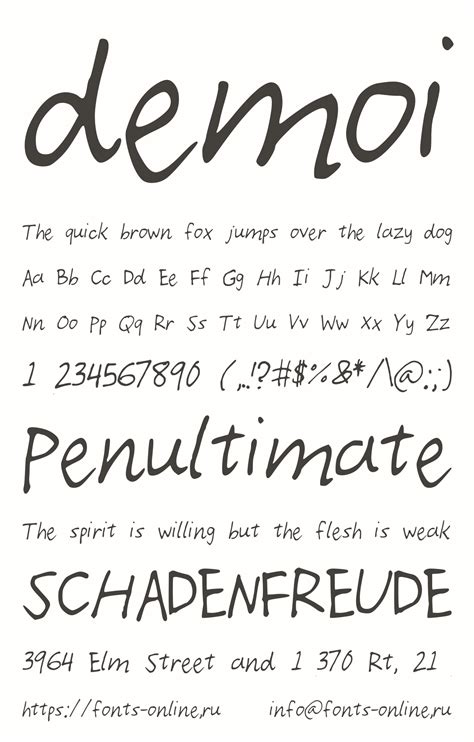 demoi
The quick brown fox jumps over the lazy dog
Aa Bb Cc Dd Ee Ff Gg Hh Ii Jj Kk Ll Mm
Nn Oo Pp Qq Rr Ss Tt Uu Vv Ww Xx Yy Zz
1 234567890 (,.!?#$%&*/\@:;)
Penultimate
The spirit is willing but the flesh is weak
SCHADENFREUDE
3964 Elm Street and 1 370 Rt, 21
https://fonts-online,ru info@fonts-online,ru